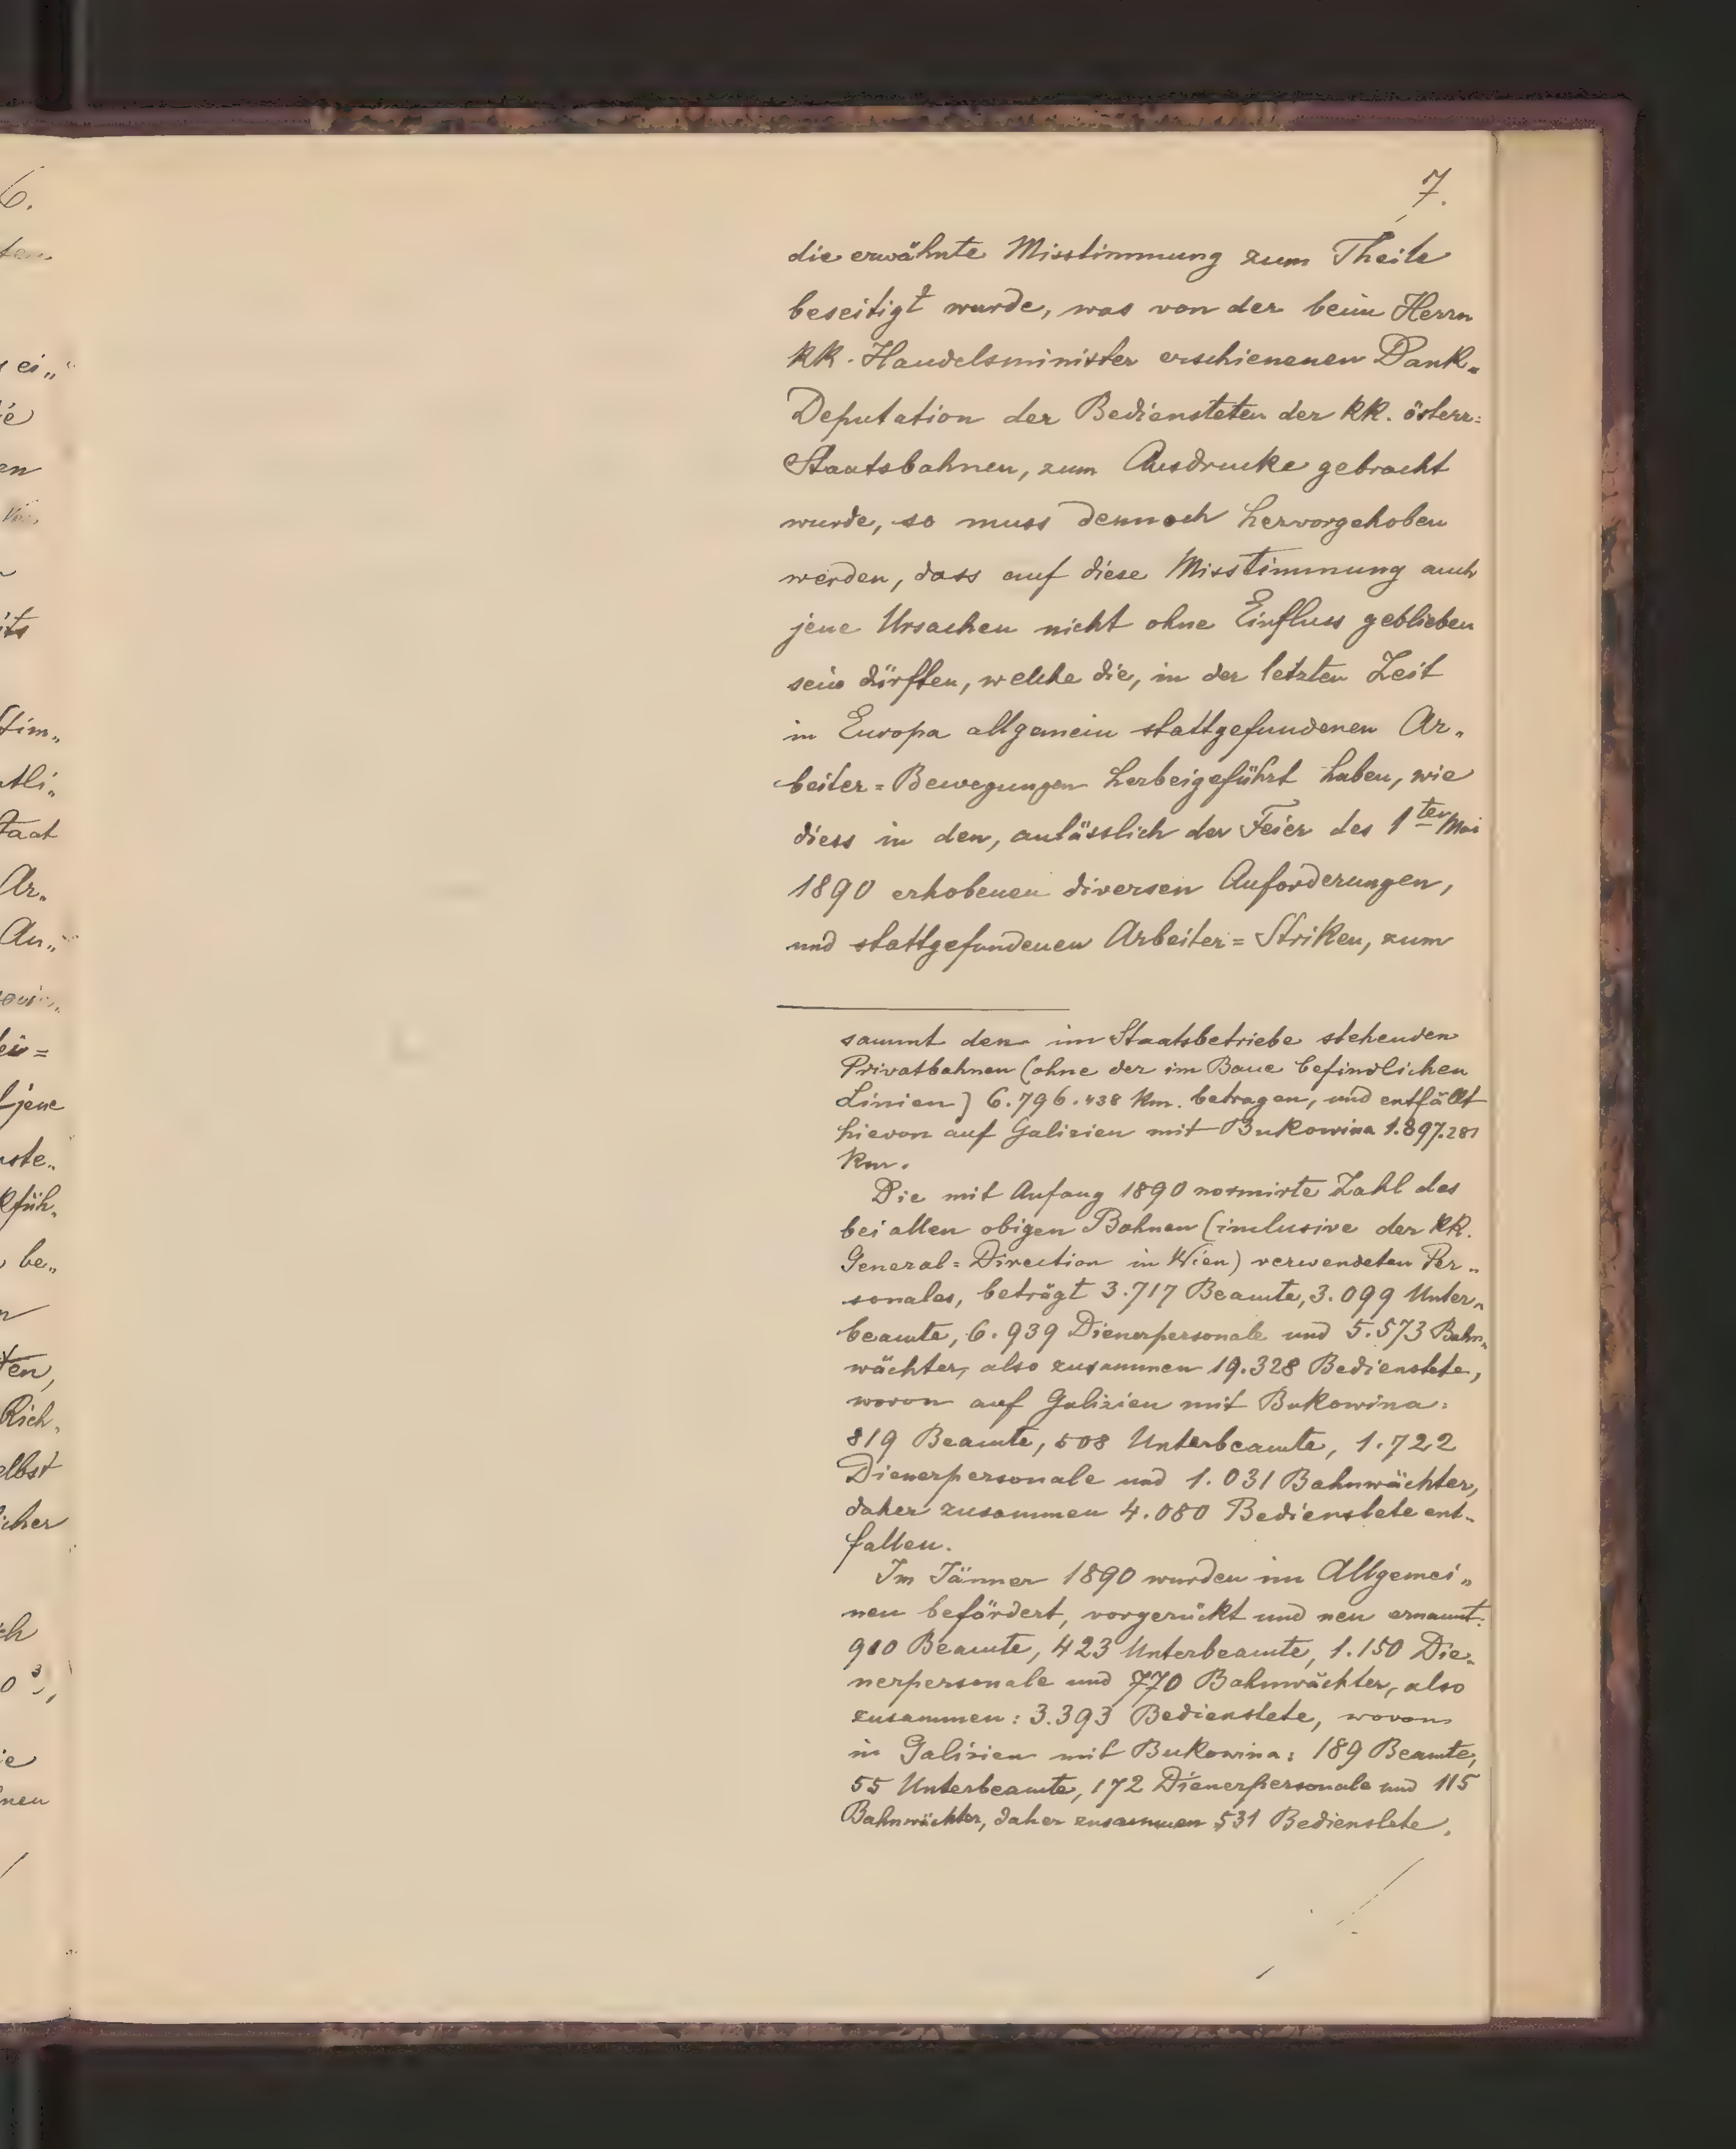 6.
ei„
en
its
tim„
tli„
taat
Ar„
An„
jene
ste„
kfüh„
be„
ten,
Rich„
elbst
icher
ch
ie
nen
7.
die erwähnte Misstimmung zum Theile
beseitigt wurde, was von der beim Herrn
kk. Handelsminister erschienenen Dank„
Deputation der Bediensteten der kk. österr:
Staatsbahnen, zum Ausdrucke gebracht
wurde, so muss dennoch hervorgehoben
werden, dass auf diese Misstimmung auch
jene Ursachen nicht ohne Einfluss geblieben
sein dürften, welche die, in der letzten Zeit
in Europa allgemein stattgefundenen Ar„
beiter=Bewegungen herbeigeführt haben, wie
diess in den, anlässlich der Feier des 1ten Mai
1890 erhobenen diversen Anforderungen,
und stattgefundenen Arbeiter=Striken, zum
sammt den im Staatsbetriebe stehenden
Privatbahnen (ohne der im Baue befindlichen
Linien) 6.796.438 km. betragen, und entfällt
hievon auf Galizien mit Bukowina 1.897.281
km.
Die mit Anfang 1890 normirte Zahl des
bei allen obigen Bahnen (inclusive der kk.
General=Direction in Wien) verwendeten Per„
sonales, beträgt 3.717 Beamte, 3.099 Unter„
beamte, 6.939 Dienerpersonale und 5.573 Bahn„
wächter, also zusammen 19.328 Bedienstete,
wovon auf Galizien mit Bukowina:
819 Beamte, 508 Unterbeamte, 1.722
Dienerpersonale und 1.031 Bahnwächter,
daher zusammen 4.080 Bedienstete ent„
fallen.
Im Jänner 1890 wurden im Allgemei„
nen befördert, vorgerückt und neu ernannt:
910 Beamte, 423 Unterbeamte, 1.150 Die„
nerpersonale und 770 Bahnwächter, also
zusammen: 3.393 Bedienstete, wovon
in Galizien mit Bukowina: 189 Beamte,
55 Unterbeamte, 172 Dienerpersonale und 115
Bahnwächter, daher zusammen 531 Bedienstete.